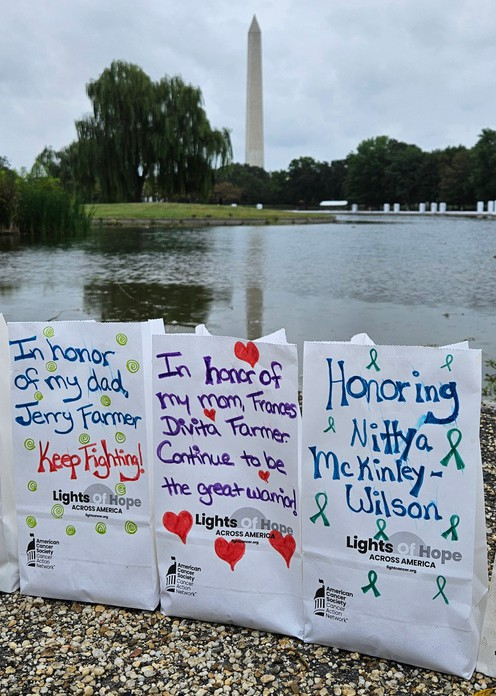 In honor
of my dad,
Jerry Farmer
Keep Fighting!
Lights Of Hope
ACROSS AMERICA
fightcancer.org
American
Cancer
Society
Cancer
Action
Network™
In honor of
my mom, Frances
Divita Farmer
Continue to be
the great warrior!
Lights Of Hope
ACROSS AMERICA
fightcancer.org
American
Cancer
Society
Cancer
Action
Network™
Honoring
Nittya
McKinley-
Wilson
Lights Of Hope
ACROSS AMERICA
fightcancer.org
American
Cancer
Society
Cancer
Action
Network™